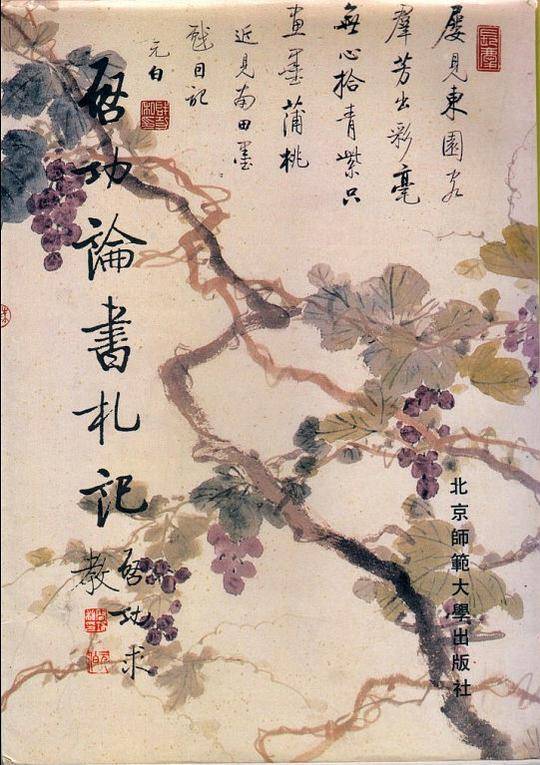 屢見東園客
羣芳出彩毫
無心拾青紫只
畫墨蒲桃
近見南田墨
戲記
元白
啓功論書札記
啓功求
教
北京師範大學出版社